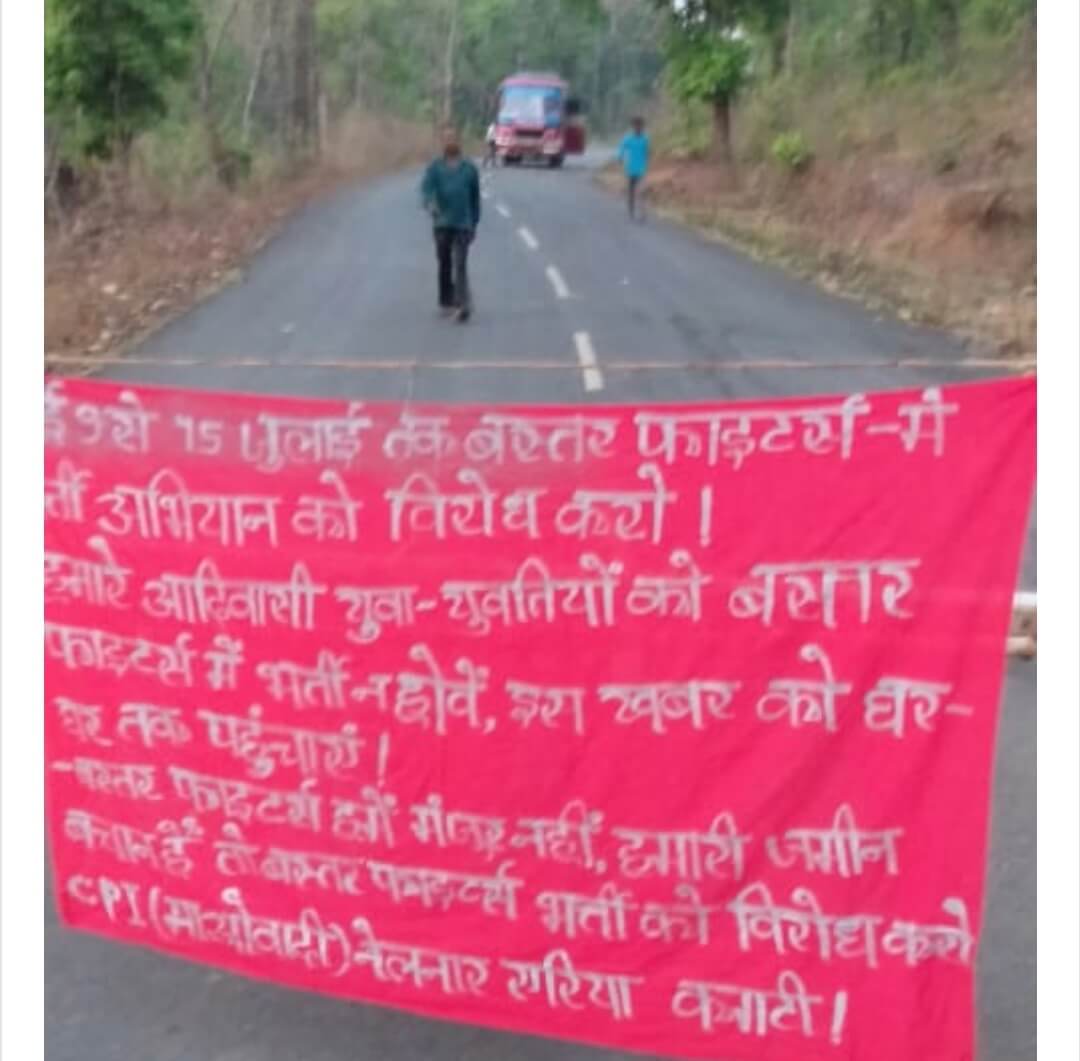 ई 9 से 15 जुलाई तक बस्तर फाइटर्स-मे
र्ती अभियान को विरोध करो !
हमारे आदिवासी युवा-युवतियों को बस्तर
फाइटर्स में भर्ती न होवें, इस खबर को घर-
घर तक पहुंचाएं !
-बस्तर फाइटर्स हमें मंजूर नहीं, हमारी जमीन
बचाना है तो बस्तर फाइटर्स भर्ती को विरोध करो
CPI (माओवादी) नेलनार एरिया कमाटी !